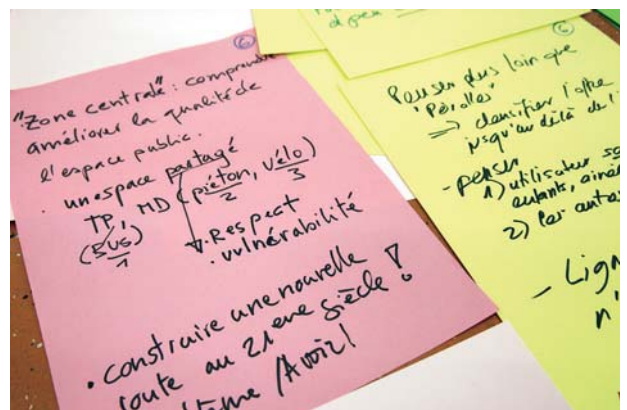 6
"Zone centrale": comprendre
améliorer la qualité de
l'espace public.
. un espace partagé
TP, MD (piéton, vélo)
(BUS) 2 3
1
. Respect
. vulnérabilité
. construire une nouvelle
route au 21 eme siècle !
6
Penser plus loin que
"Pérolles"
=> densifier l'offre
jusqu'au delà de l'
- penser
1) utilisateur
enfants,
2)
- Lign
n'